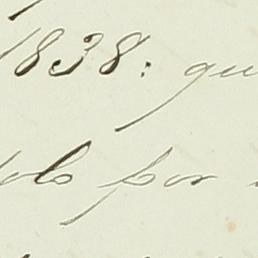 1838: qu
olo por